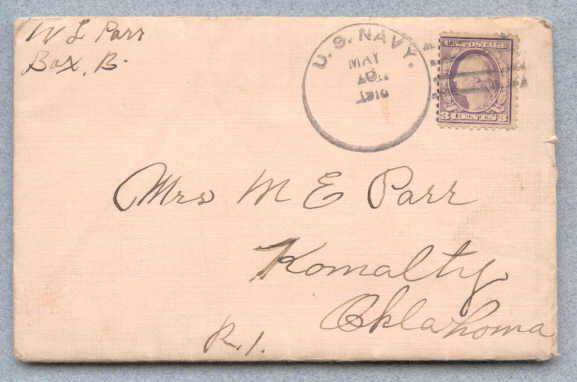 W L Parr
Box, B.
U. S. NAVY.
MAY
1918
3 CENTS 3
Mrs M E Parr
Komalty
Oklahoma
R.1.